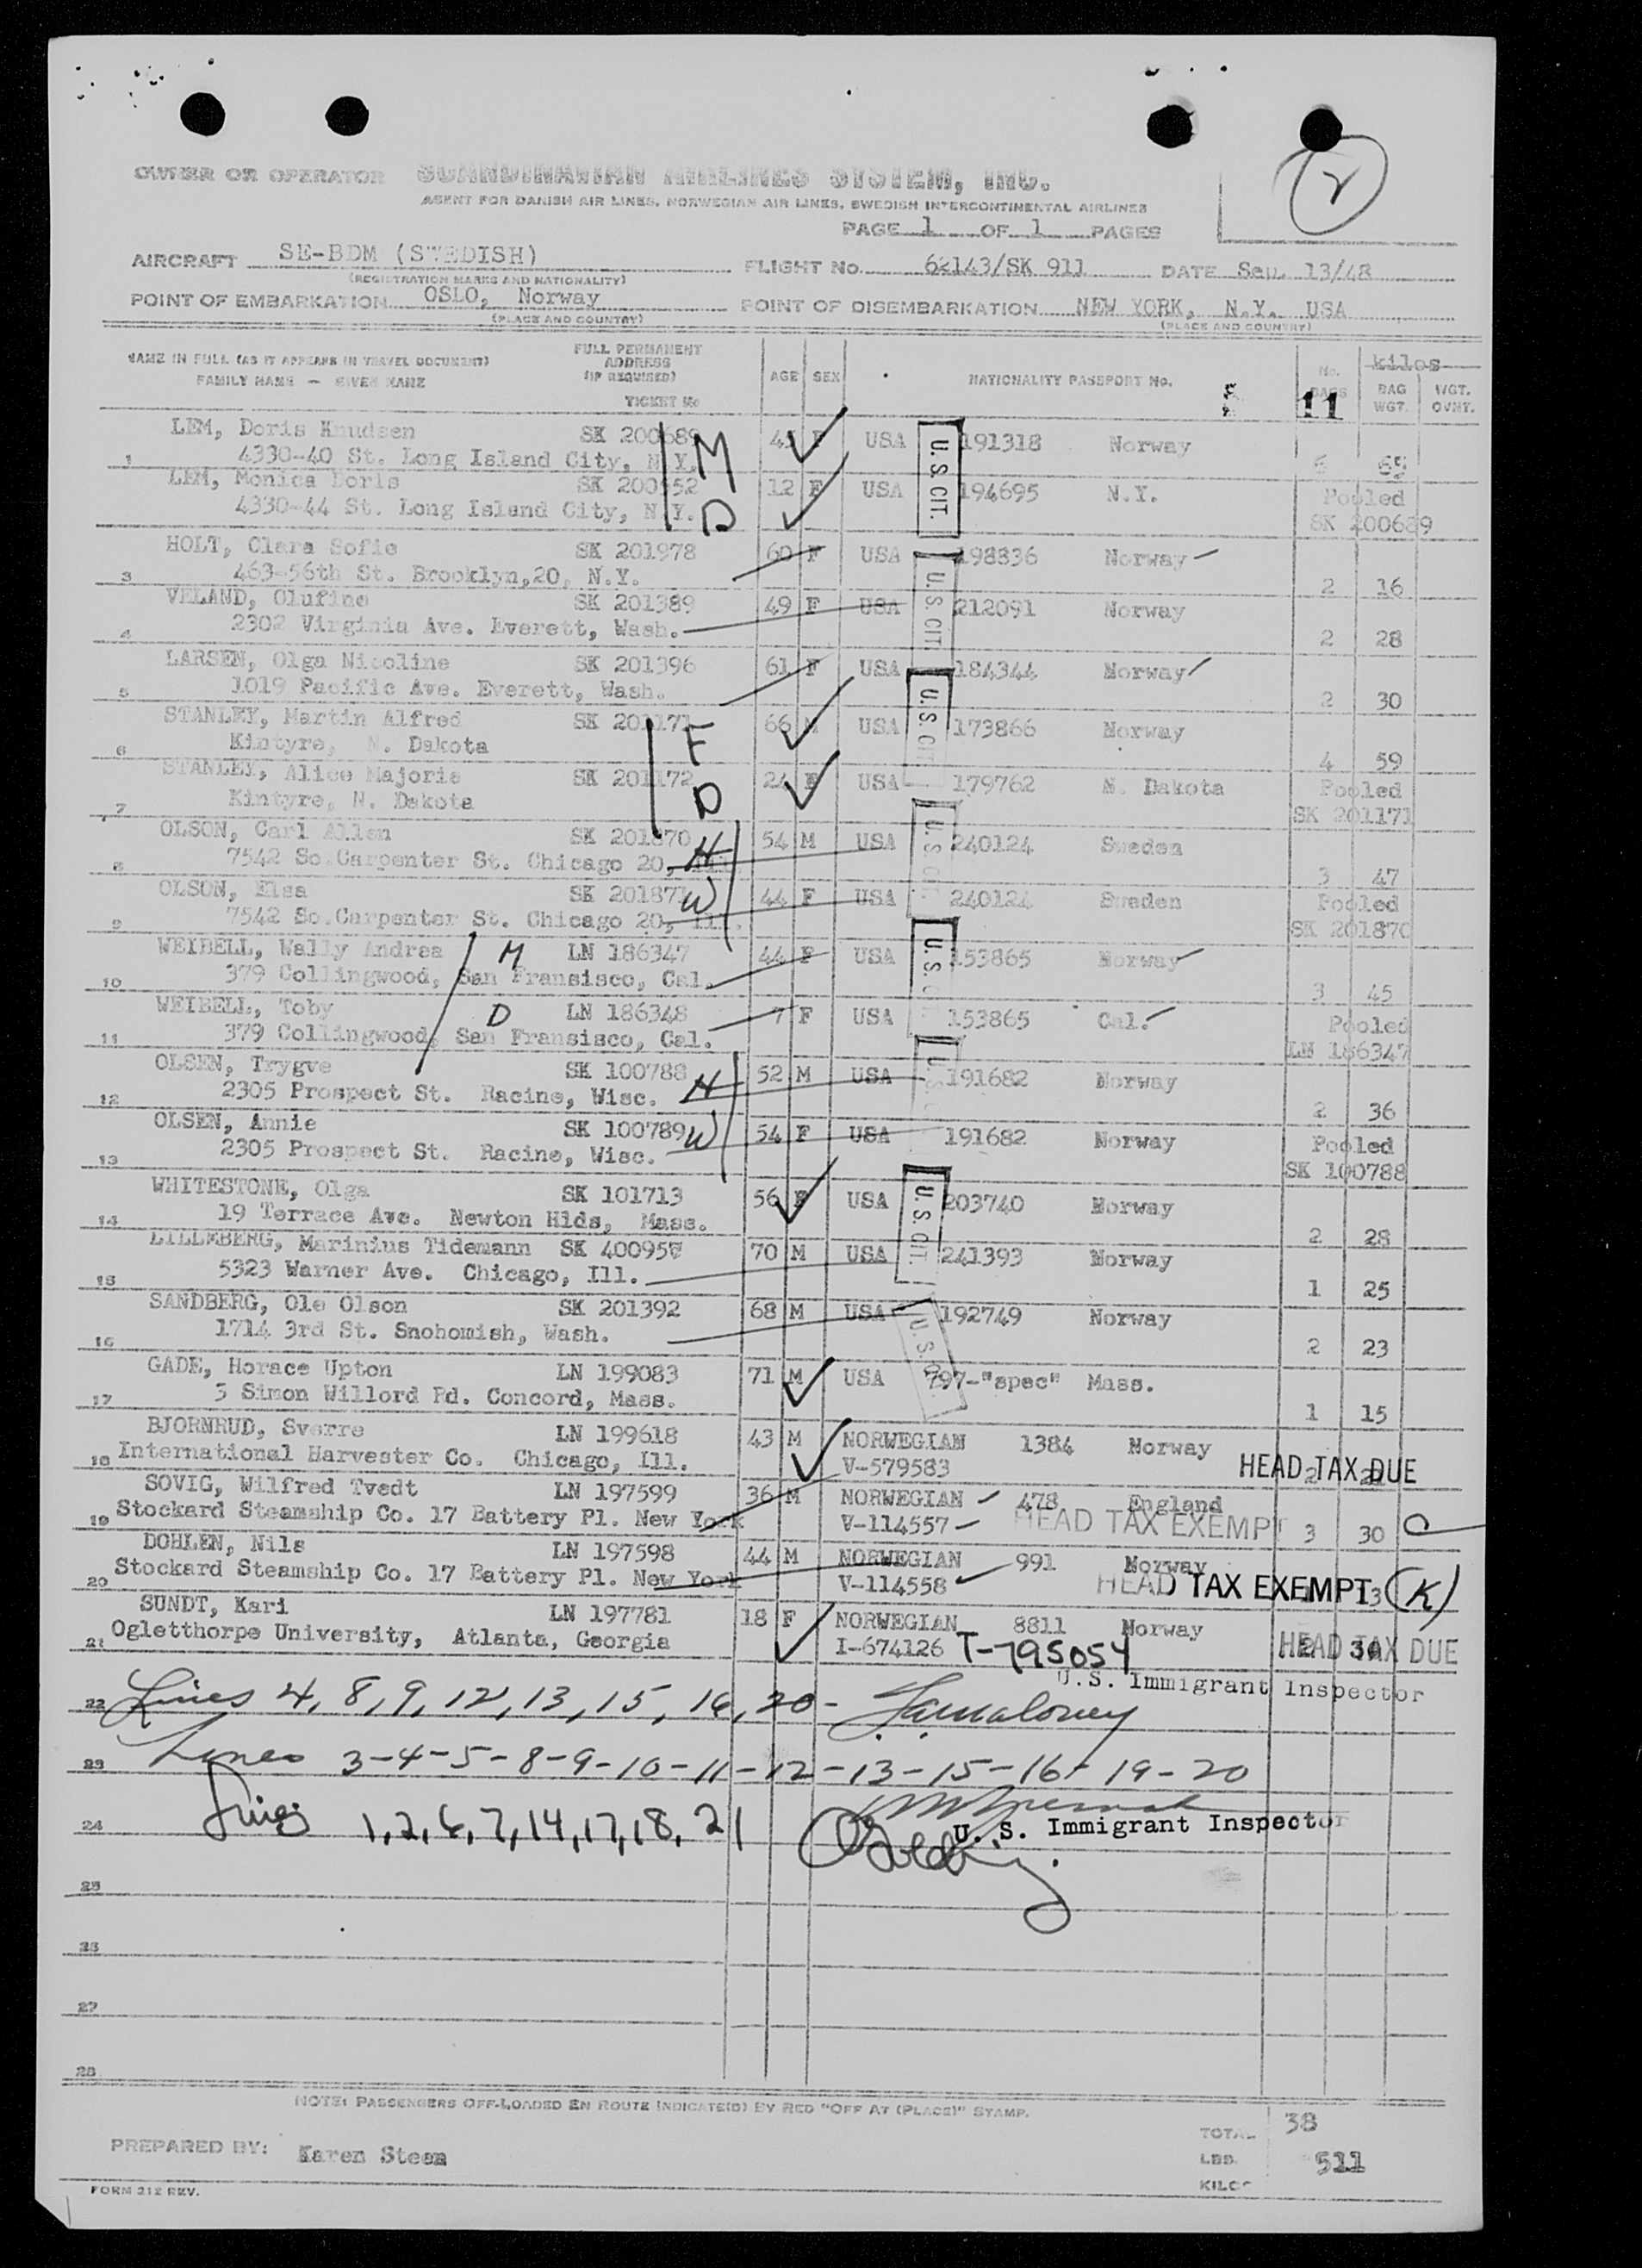 2
OWNER OR OPERATOR SCANDINAVIAN AIRLINES SYSTEM, INC.
AGENT FOR DANISH AIR LINES, NORWEGIAN AIR LINES, SWEDISH INTERCONTINENTAL AIRLINES
PAGE 1 OF 1 PAGES
AIRCRAFT SE-BDM (SWEDISH) FLIGHT No. 62143/SK 911 DATE Sep. 13/48
(REGISTRATION MARKS AND NATIONALITY)
POINT OF EMBARKATION OSLO, Norway POINT OF DISEMBARKATION NEW YORK, N.Y. USA
(PLACE AND COUNTRY) (PLACE AND COUNTRY)
NAME IN FULL (AS IT APPEARS IN TRAVEL DOCUMENT) FULL PERMANENT ADDRESS (IF REQUIRED) kilos
FAMILY NAME — GIVEN NAME TICKET No AGE SEX NATIONALITY PASSPORT No. No. BAGS BAG WGT. WGT. OVHT.
11
LEM, Doris Knudsen SK 200689 M F USA U.S. CIT. 191318 Norway 6 65
1 4330-40 St. Long Island City, N.Y.
LEM, Monica Doris SK 200952 D 12 F USA 194695 N.Y. Pooled
4330-44 St. Long Island City, N.Y. SK 200689
HOLT, Clara Sofie SK 201978 60 F USA U.S. CIT. 198836 Norway
3 463-56th St. Brooklyn,20, N.Y. 2 16
VELAND, Olufine SK 201389 49 F USA 212091 Norway
4 2302 Virginia Ave. Everett, Wash. 2 28
LARSEN, Olga Nicoline SK 201396 61 F USA 184344 Norway
5 1019 Pacific Ave. Everett, Wash. 2 30
STANLEY, Martin Alfred SK 201171 F 66 M USA U.S. CIT 173866 Norway
6 Kintyre, N. Dakota 4 59
STANLEY, Alice Majorie SK 201172 D 24 F USA 179762 N. Dakota Pooled
7 Kintyre, N. Dakota SK 201171
OLSON, Carl Allen SK 201870 H 54 M USA U.S. C 240124 Sweden
8 7542 So.Carpenter St. Chicago 20, Ill. 3 47
OLSON, Elsa SK 201871 W 44 F USA 240124 Sweden Pooled
9 7542 So.Carpenter St. Chicago 20, Ill. SK 201870
WEIBELL, Wally Andrea M LN 186347 44 F USA U.S. C 153865 Norway
10 379 Collingwood, San Fransisco, Cal. 3 45
WEIBELL, Toby D LN 186348 7 F USA 153865 Cal. Pooled
11 379 Collingwood, San Fransisco, Cal. LN 186347
OLSEN, Trygve SK 100788 H 52 M USA U.S. C 191682 Norway
12 2305 Prospect St. Racine, Wisc. 2 36
OLSEN, Annie SK 100789 W 54 F USA 191682 Norway Pooled
13 2305 Prospect St. Racine, Wisc. SK 100788
WHITESTONE, Olga SK 101713 56 F USA U.S. CIT. 203740 Norway
14 19 Terrace Ave. Newton Hlds, Mass. 2 28
LILLEBERG, Marinius Tidemann SK 400957 70 M USA 241393 Norway
15 5323 Warner Ave. Chicago, Ill. 1 25
SANDBERG, Ole Olson SK 201392 68 M USA U.S. C 192749 Norway
16 1714 3rd St. Snohomish, Wash. 2 23
GADE, Horace Upton LN 199083 71 M USA 797-"spec" Mass.
17 3 Simon Willord Rd. Concord, Mass. 1 15
BJORNRUD, Sverre LN 199618 43 M NORWEGIAN 1384 Norway
18 International Harvester Co. Chicago, Ill. V-579583 HEAD TAX DUE
SOVIG, Wilfred Tvedt LN 197599 36 M NORWEGIAN 478 England
19 Stockard Steamship Co. 17 Battery Pl. New York V-114557 HEAD TAX EXEMPT 3 30
DOHLEN, Nils LN 197598 44 M NORWEGIAN 991 Norway
20 Stockard Steamship Co. 17 Battery Pl. New York V-114558 HEAD TAX EXEMPT 13 (K)
SUNDT, Kari LN 197781 18 F NORWEGIAN 8811 Norway
21 Ogletthorpe University, Atlanta, Georgia I-674126 T-795054 2 30 HEAD TAX DUE
U.S. Immigrant Inspector
22 Lines 4, 8, 9, 12, 13, 15, 16, 20 -
23 Lines 3-4-5-8-9-10-11-12-13-15-16-19-20
24 Lines 1, 2, 6, 7, 14, 17, 18, 21 U. S. Immigrant Inspector
25
26
27
28
NOTE: PASSENGERS OFF-LOADED EN ROUTE INDICATE(D) BY RED "OFF AT (PLACE)" STAMP.
TOTAL 38
PREPARED BY: Karen Steen LBS. 511
KILOS
FORM 212 REV.